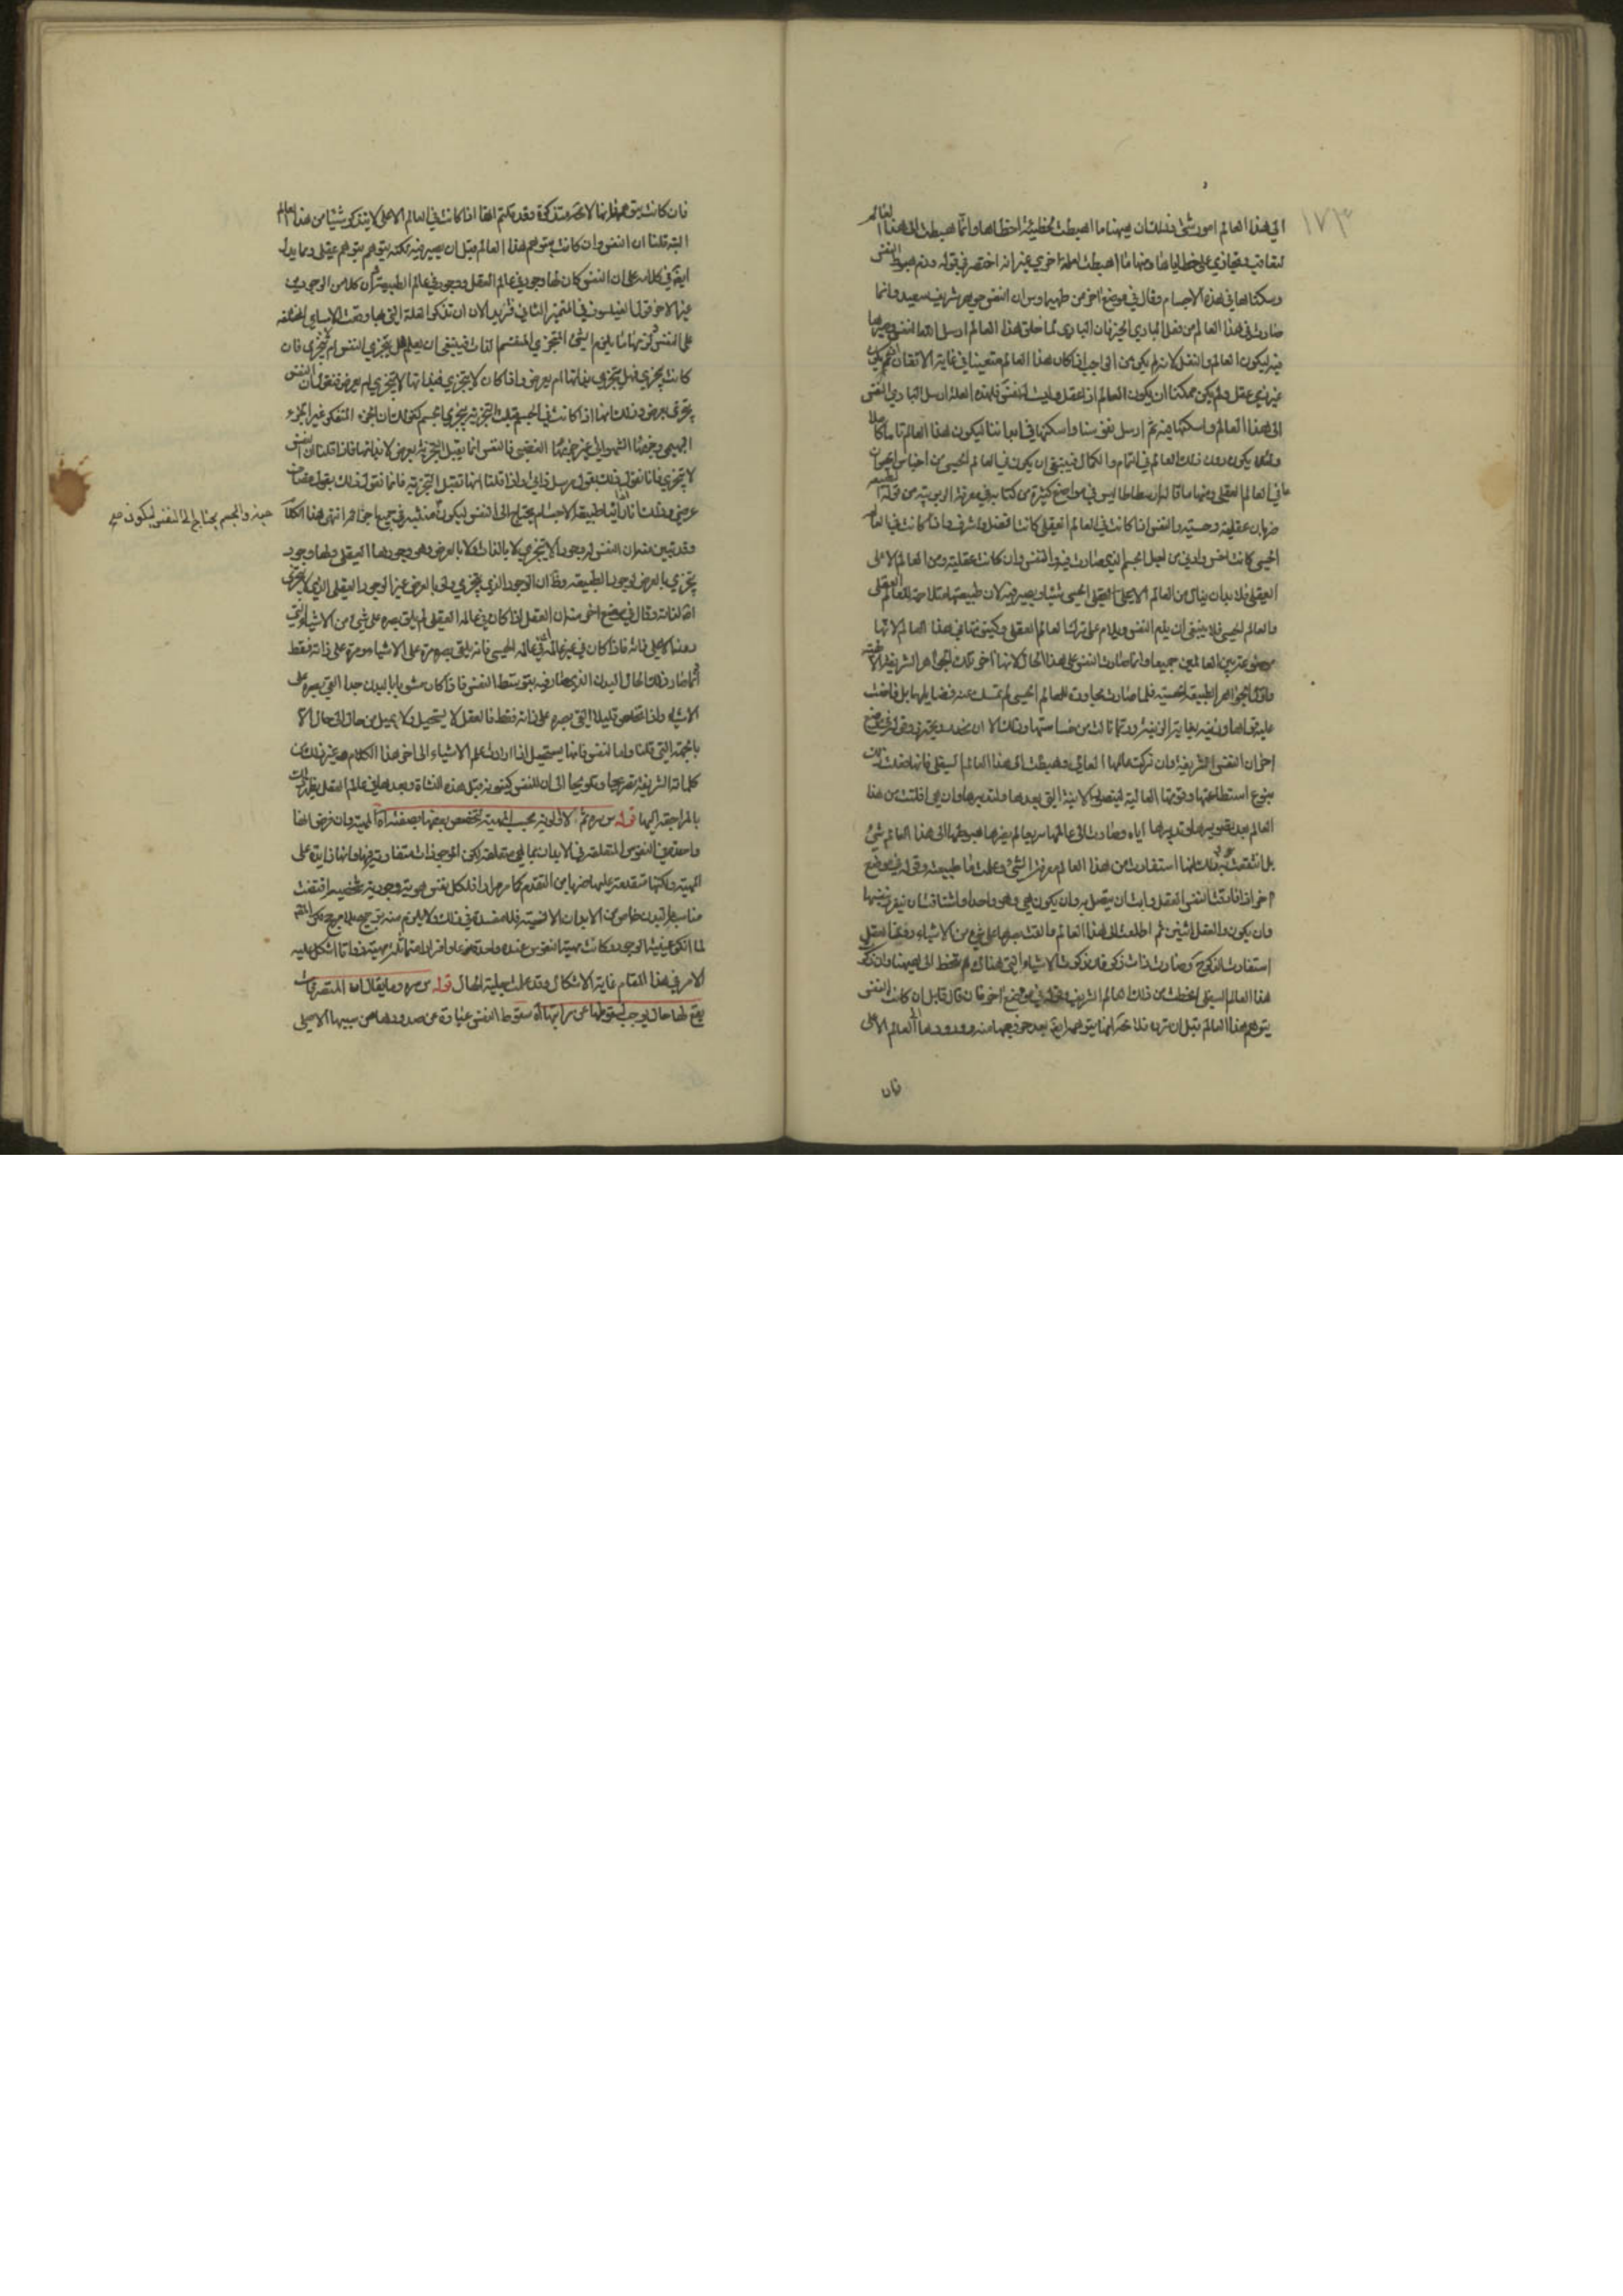 ١٧٣
الى هذا العالم امور شتى وذلك ان منها ما اهبطت لخطيئة اخطاها وانما هبطت الى هذا العالم
لتعاقب وتجازى على خطاياها ومنها ما اهبطت لعلة اخرى غير انه اختصر في قوله وذم هبوط النفس
وسكناها في هذه الاجسام وقال في موضع اخر من طيماوس ان النفس جوهر شريف سعيد وانما
صارت في هذا العالم من فعل الباري الخير فان الباري لما خلق هذا العالم ارسل اليها النفس وصيرها
فيه ليكون العالم ذا عقل لانه لم يكن من الواجب اذا كان هذا العالم متقنا في غاية الاتقان ان يكون
غير ذي عقل ولم يكن ممكنا ان يكون العالم ذا عقل وليست له نفس فلهذه العلة ارسل الباري النفس
الى هذا العالم واسكنها فيه ثم ارسل نفوسنا واسكنها في ابداننا ليكون هذا العالم تاما كاملا
ولئلا يكون دون ذلك العالم في التمام والكمال فينبغي ان يكون في العالم الحسي من اجناس الحيوان
ما في العالم العقلي ومنها ما قاله ارسطاطاليس في مواضع كثيرة من كتابه في معرفة الربوبية من قوله الطبيعة
ضربان عقلية وحسية والنفس اذا كانت في العالم العقلي كانت افضل واشرف واذا كانت في العالم
الحسي كانت اخس وادنى من اجل الجسم الذي صارت فيه والنفس وان كانت عقلية ومن العالم الاعلى
العقلي فلا بد ان ينال من العالم الحسي شيئا ويصير فيه لان طبيعتها متلاحمة للعالم العقلي
والعالم الحسي فلا ينبغي ان يذم النفس ويلام على ترك العالم العقلي وكينونتها في هذا العالم لانها
موضوعة بين العالمين جميعا وانما صارت النفس على هذا الحال لانها اخر تلك الجواهر الشريفة الالهية
واول الجواهر الطبيعية الحسية فلما صارت مجاورة للعالم الحسي لم تمسك عنه فضايلها بل فاضت
عليه قواها وزينته بغاية الزينة وربما نالت من خساستها وذلك الا ان يحذر ويحترز وقوله في موضع
اخر ان النفس الشريفة وان تركت عالمها العالي وهبطت الى هذا العالم السفلي فانها فعلت ذلك
بنوع استطاعتها وقوتها العالية لتصور الانية التي بعدها ولتدبرها وان هي افلتت من هذا
العالم بعد تصويرها وتدبيرها اياه وصارت الى عالمها سريعا لم يضرها هبوطها الى هذا العالم شيئ
بل انتفعت به وذلك انها استفادت من هذا العالم معرفة الشيئ وعلمت ما طبيعته وقوله في موضع
اخر اذا فارقت النفس العقل وابت ان يتصل به وان يكون هي وهو واحدا واشتاقت ان تنفرد بنفسها
وان يكون والعقل اثنين ثم اطلعت الى هذا العالم والقت بصرها على شيئ من الاشياء دون العقل
استفادت الذكر ح وصارت ذات ذكر فان ذكرت الاشياء التي هناك لم تنحط الى ههنا وان ذكرت
هذا العالم السفلي انحطت من ذلك العالم الشريف وقوله في موضع اخر فان قال قائل ان كانت النفس
يتوهم هذا العالم قبل ان ترده فلا محالة انها يتوهمه ايضا بعد خروجها منه وورودها الى العالم الاعلى
فان
فان كانت يتوهمه فانها لا محالة يتذكره وقد قلتم انها اذا كانت في العالم الاعلى لا يتذكر شيئا من هذا العالم
البتة قلنا ان النفس وان كانت يتوهم هذا العالم قبل ان يصير فيه لكنه يتوهم بتوهم عقلي ومما يدل
ايضا في كلامه على ان النفس كان لها وجود في عالم العقل ووجود في عالم الطبيعة وان كلا من الوجودين
غير الاخر قول الفيلسوف في الميمر الثاني فنريد الان ان نذكر العلة التي بها وقعت الاسامي المختلفة
على النفس ولزمها ما يلزم الشئ المتجزي المنقسم الذات فينبغي ان يعلم هل يتجزي النفس ام لا يتجزي فان
كانت يتجزي فهل يتجزي بذاتها ام بعرض واذا كان لا يتجزي فبذاتها لا يتجزي ام بعرض فنقول ان النفس
يتجزى بعرض وذلك انها اذا كانت في الجسم قبلت التجزية بتجزي الجسم كقولك ان الجزء المتفكر غير الجزء
البهيمي وجزءها الشهواني غير جزءها الغضبي فالنفس انما يقبل التجزية بعرض لا بذاتها فاذا قلنا ان النفس
لا يتجزي فانا نقول ذلك بقول مرسل ذاتي واذا قلنا انها تقبل التجزية فانما نقول ذلك بقول مضاف
عرضي وذلك انا اذا راينا طبيعة الاجسام يحتاج الى النفس ليكون منبثة في جميع اجزائه انتهى هذا الكلام
حية والجسم يحتاج الى النفس ليكون صح
وقد تبين منه ان النفس لها وجود لا يتجزي لا بالذات ولا بالعرض وهو وجودها العقلي ولها وجود
يتجزي بالعرض لوجود الطبيعة وظ ان الوجود الذي يتجزي ولو بالعرض غير الوجود العقلي الذي لا يتجزى
اصلا لذاته وقال في موضع اخر منه ان العقل اذا كان في عالمه العقلي لم يلق بصره على شيئ من الاشياء التي
دونه الا على ذاته فاذا كان في غير عالمه اي في عالم الحسي فانه يلقى بصره مرة على الاشياء ومرة على ذاته فقط
وانما صار ذلك لحال البدن الذي صار فيه بتوسط النفس فاذا كان مشوبا بالبدن جدا القى بصره على
الاشياء واذا تخلص قليلا القى بصره على ذاته فقط فالعقل لا يستحيل ولا يميل من حال الى حال الا
بالجهة التي قلنا واما النفس فانها يستحيل اذا ارادت علم الاشياء الى اخر هذا الكلام وغير ذلك من
كلماته الشريفة تصريحا وتلويحا الى ان للنفس كينونة قبل هذه النشاة وبعدها في عالم العقل يظهر ذلك
بالمراجعة اليها قوله س سره ثم لا اولوية بحسب المهية لتخصص بعضها بصفة اه المهية وان فرضناها
واحدة في النفوس المتعلقة في الابدان بما هي متعلقة لكن الوجودات متفاوتة فيها وانها زايدة على
المهية ولكنها متقدمة عليها ضربا من التقدم كما مر مرارا فلكل نفس هوية وجودية شخصية اقتضت
مناسبة لبدن خاص من الابدان الانسية فلا مفسدة في ذلك ولا يلزم منه ترجيح بلا مرجح ولكن المص
لما انكر عينية الوجود وكانت مهية النفوس عنده واحدة نوعا وافرادا متماثلة مهية وذاتا اشكل عليه
الامر في هذا المقام غاية الاشكال وقد علمت جلية الحال قوله س سره وما يقال ان المتصرفات
يقع لها حال يوجب سقوطها عن مراتبها اه سقوط النفس عبارة عن صدورها عن سببها الاصلي